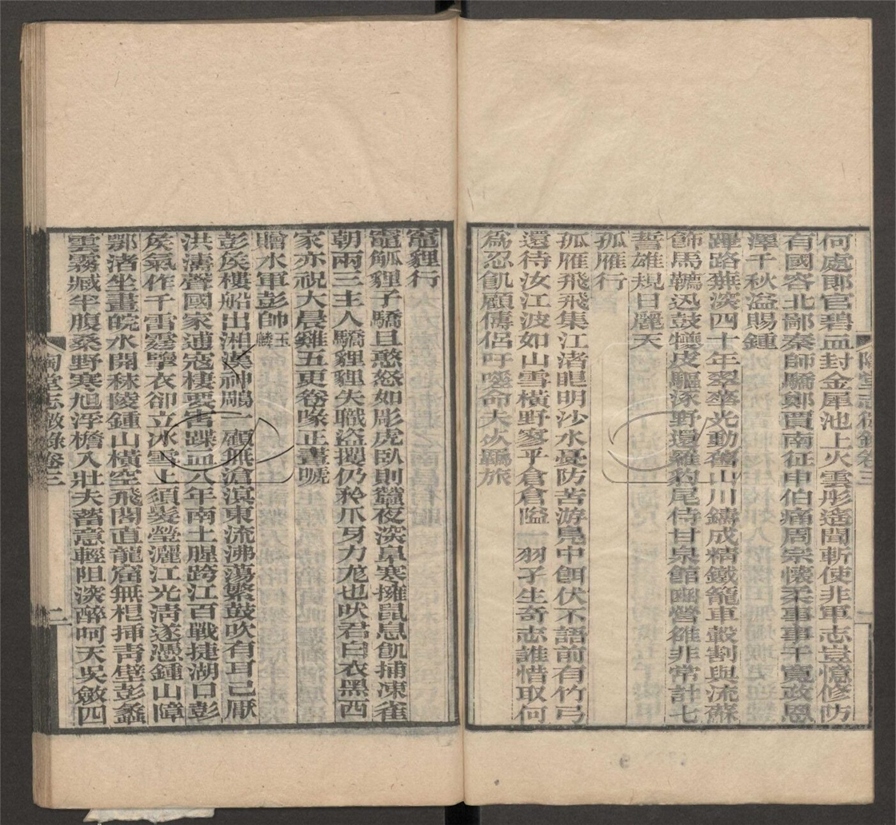 何處郎官碧血封金犀池上火雲彤遙聞斬使非軍志豈憶修防
有國容北鄙秦師驕鄭賈南征申伯痛周宗懷柔事事干實政恩
澤千秋溢賜鍾
蹕路蕪淡四十年翠華光動舊山川鑄成精鐵籠車轂割與流蘇
飾馬韉迅鼓犢皮驅涿野還羅豹尾侍甘泉館幽營雒非常計七
誓雄規日麗天
孤雁行
孤雁飛飛集江渚眼明沙水憂防苦游鳧中餌伏不語前有竹弓
還待汝江波如山雪橫野寥乎倉倉隘一羽子生奇志誰惜取何
為忍飢顧儔侶吁嗟命夫从羈旅
陶堂志微錄卷三
竈貍行
竈觚貍子驕且憨怒如彫虎臥則蠶夜深鼻寒擁鼠息飢捕凍雀
朝兩三主人驕貍貍失職盜搜仍矜爪牙力尨也吠君白衣黑西
家亦祝大晨雞五更卷喙正晝號
贈水軍彭帥玉麟
彭侯樓船出湘漢神鷳一顧無滄溟東流沸蕩繁鼓吹有耳已厭
洪濤聲國家逋寇棲要害蹀血八年南土腥跨江百戰捷湖口彭
侯氣作千雷霆擘衣卻立冰雪上須髮瑩灑江光清遂憑鍾山障
鄂渚坐晝皖水開秣陵鍾山橫空飛閣直龍窟無梍插青壁彭蠡
雲霧臧半腹桑野寒旭浮檐入壯夫蓄意輕阻淡醉呵天吳斂四
陶堂志微錄卷三
二